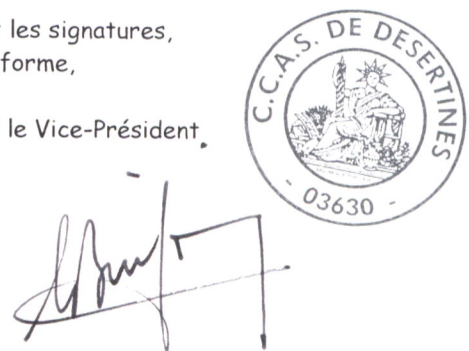 les signatures,
forme,
le Vice-Président.
C.C.A.S. DE DESERTINES
- 03630 -